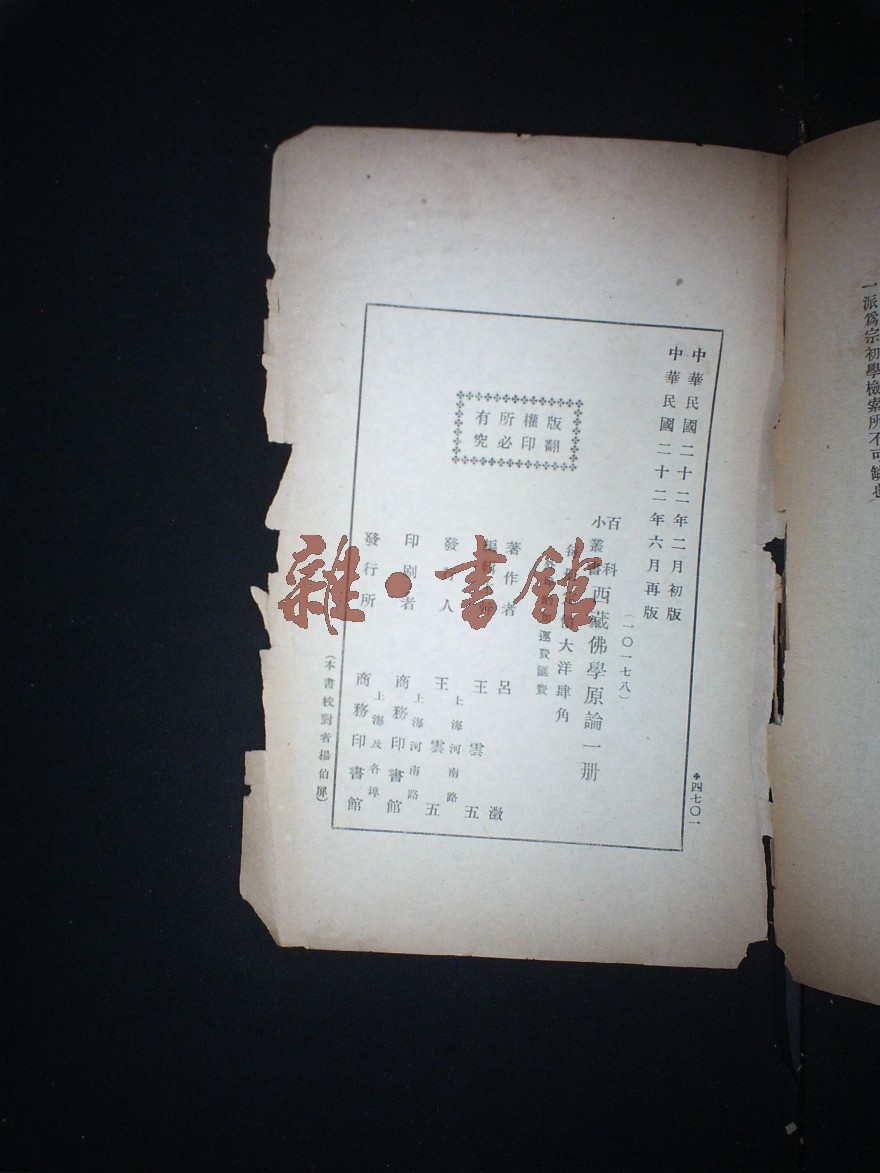 一派爲宗初學檢索所不可缺也
中華民國二十二年二月初版
中華民國二十二年六月再版
✤四七〇一
(一〇一七八)
百科
小叢書
西藏佛學原論一册
大洋肆角
運費匯費
版權所有
翻印必究
著作者 呂澂
王雲五
發行人 王雲五
上海河南路
印刷者 商務印書館
上海河南路
發行所 商務印書館
上海及各埠
(本書校對者楊伯屏)
雜·書館